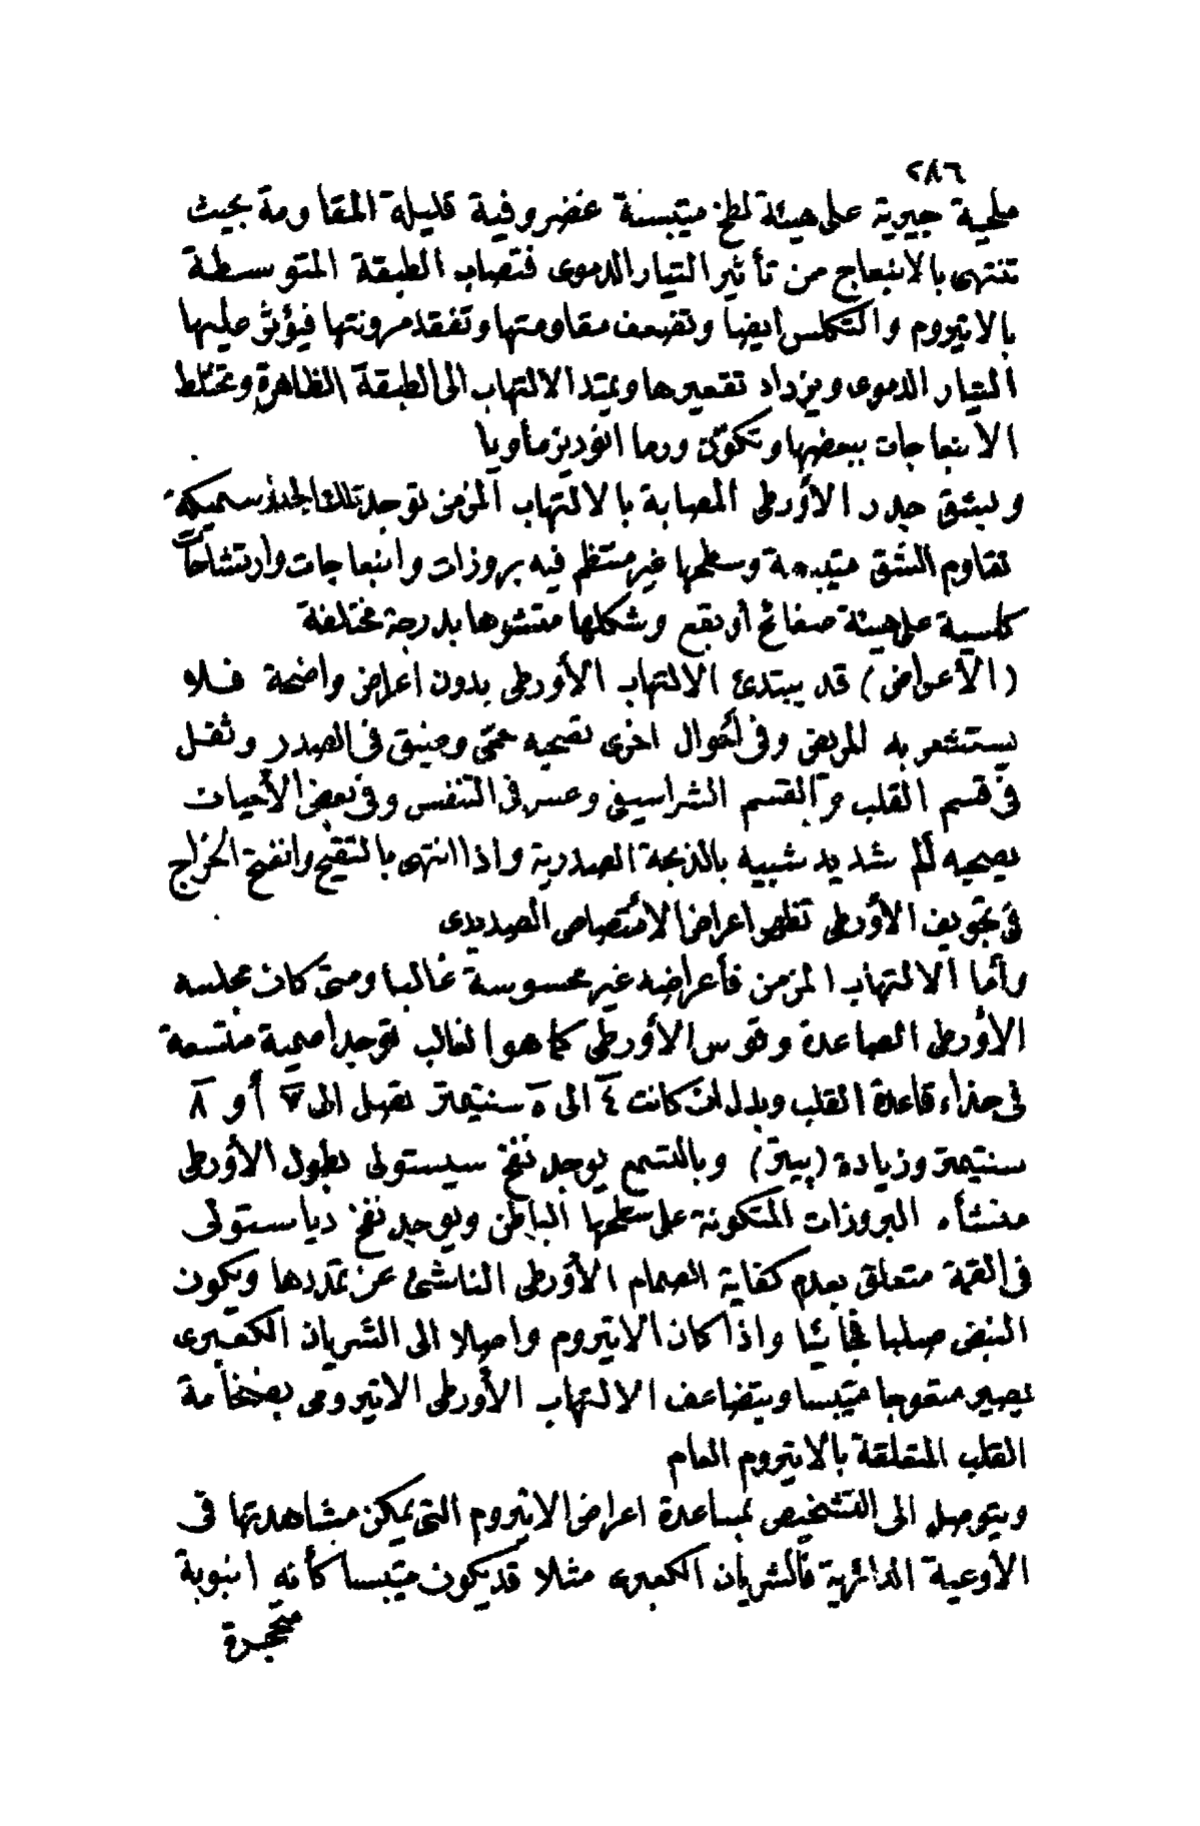 ٢٨٦
ملحية جيرية على هيئة لطخ متيبسة غضروفية قليلة المقاومة بحيث
تنتهى بالانبعاج من تأثير التيار الدموى فتصاب الطبقة المتوسطة
بالاتيروم والتكلس ايضا وتضعف مقاومتها وتفقد مرونتها فيؤثر عليها
التيار الدموى ويزداد تقعيرها ويمتد الالتهاب الى الطبقة الظاهرة وتختلط
الانبعاجات ببعضها وتكوّن ورما انوريزماويا
وبشق جدر الأورطى المصابة بالالتهاب المزمن توجد تلك الجدر سميكة
تقاوم الشق متيبسة وسطحها غير منتظم فيه بروزات وانبعاجات وارتشاحات
كلسية على هيئة صفائح أو بقع وشكلها متشوها بدرجة مختلفة
(الأعراض) قد يبتدئ الالتهاب الأورطى بدون اعراض واضحة فلا
يستشعر به المريض وفى أحوال اخرى تصحبه حمّى وضيق فى الصدر وثقل
فى قسم القلب والقسم الشراسيفى وعسر فى التنفس وفى بعض الأحيان
يصحبه ألم شديد شبيه بالذبحة الصدرية واذا انتهى بالتقيح وانفتح الخرّاج
فى تجويف الأورطى تظهر اعراض الامتصاص الصديدى
وأما الالتهاب المزمن فأعراضه غير محسوسة غالبا ومتى كان مجلسه
الأورطى الصاعدة وقوس الأورطى كما هو الغالب توجد أصمية متسعة
فى حذاء قاعدة القلب وبدل ان كانت ٤ الى ٥ سنتيمتر تصل الى ٧ أو ٨
سنتيمتر وزيادة (بيتر) وبالتسمع يوجد نفخ سيستولى بطول الأورطى
منشأه البروزات المتكونة على سطحها الباطن ويوجد نفخ دياستولى
فى القمة متعلق بعدم كفاية الصمام الأورطى الناشئ عن تمددها ويكون
النبض صلبا فجائيا واذا كان الاتيروم واصلا الى الشريان الكعبرى
يصير متعوجا متيبسا ويتضاعف الالتهاب الأورطى الاتيرومى بضخامة
القلب المتعلقة بالاتيروم العام
ويتوصل الى التشخيص بمساعدة اعراض الاتيروم التى يمكن مشاهدتها فى
الأوعية الدائرية فالشريان الكعبرى مثلا قد يكون متيبسا كأنه انبوبة
متحجرة